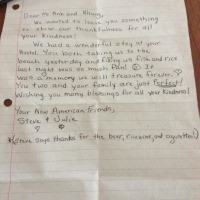 Dear Mr. Bink and Khung,
We wanted to leave you something
to show our thankfulness for all
your kindness.
We had a wonderful stay at your
hostel. You both taking us to the
beach yesterday and fixing us fish and rice
last night was so much fun! It
was a memory we will treasure forever.
You two and your family are just Perfect!
Wishing you many blessings for all your kindness!
Your New American Friends,
Steve & Julie
(Steve says thanks for the beer, rice wine, and cigarettes!)